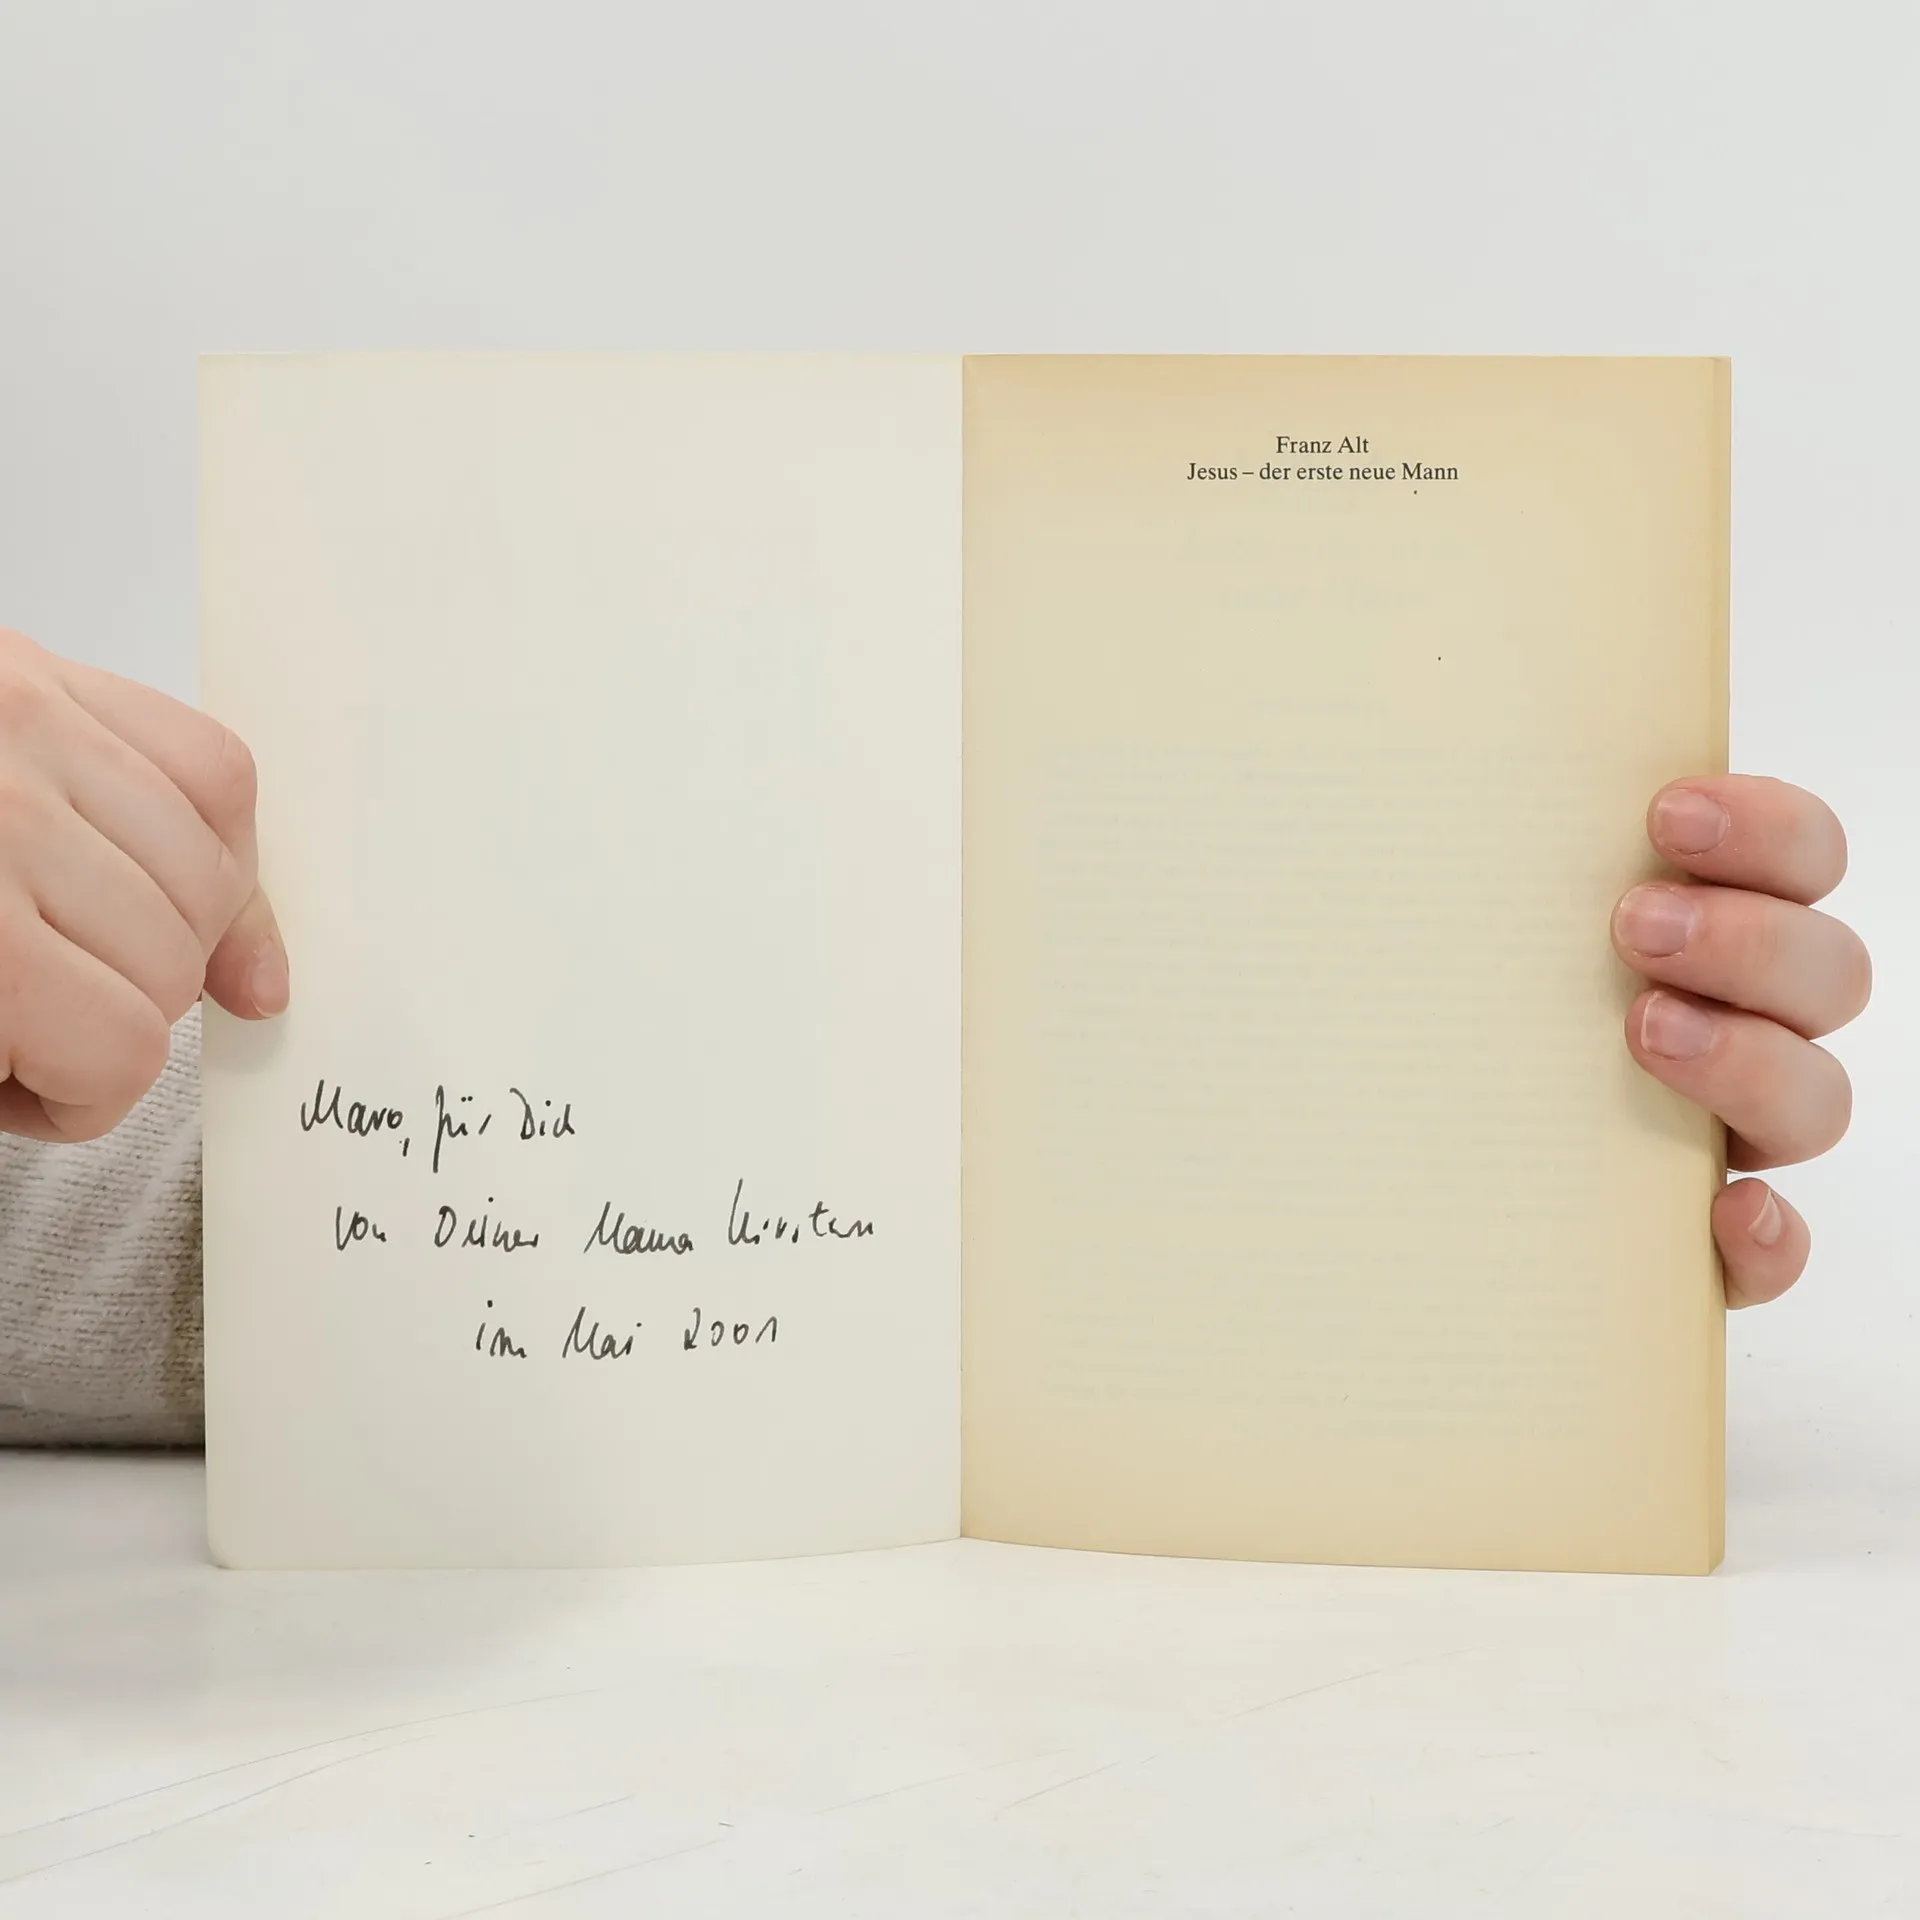 Maro, für Dich
von Deiner Mama Kirsten
im Mai 2001
Franz Alt
Jesus – der erste neue Mann